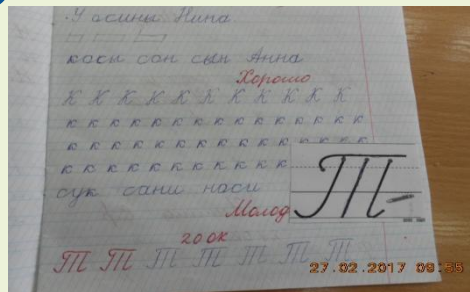 У осины Нина.
косы сон сын Анна
Хорошо
К К К К К К К К К К К
к к к к к к к к к к к к к к к
к к к к к к к к к к к к к к к
к к к к к к к к к к к
сук сани наси
Молод
20 ок
Т Т Т Т Т Т Т
Т
27.02.2017 09:55